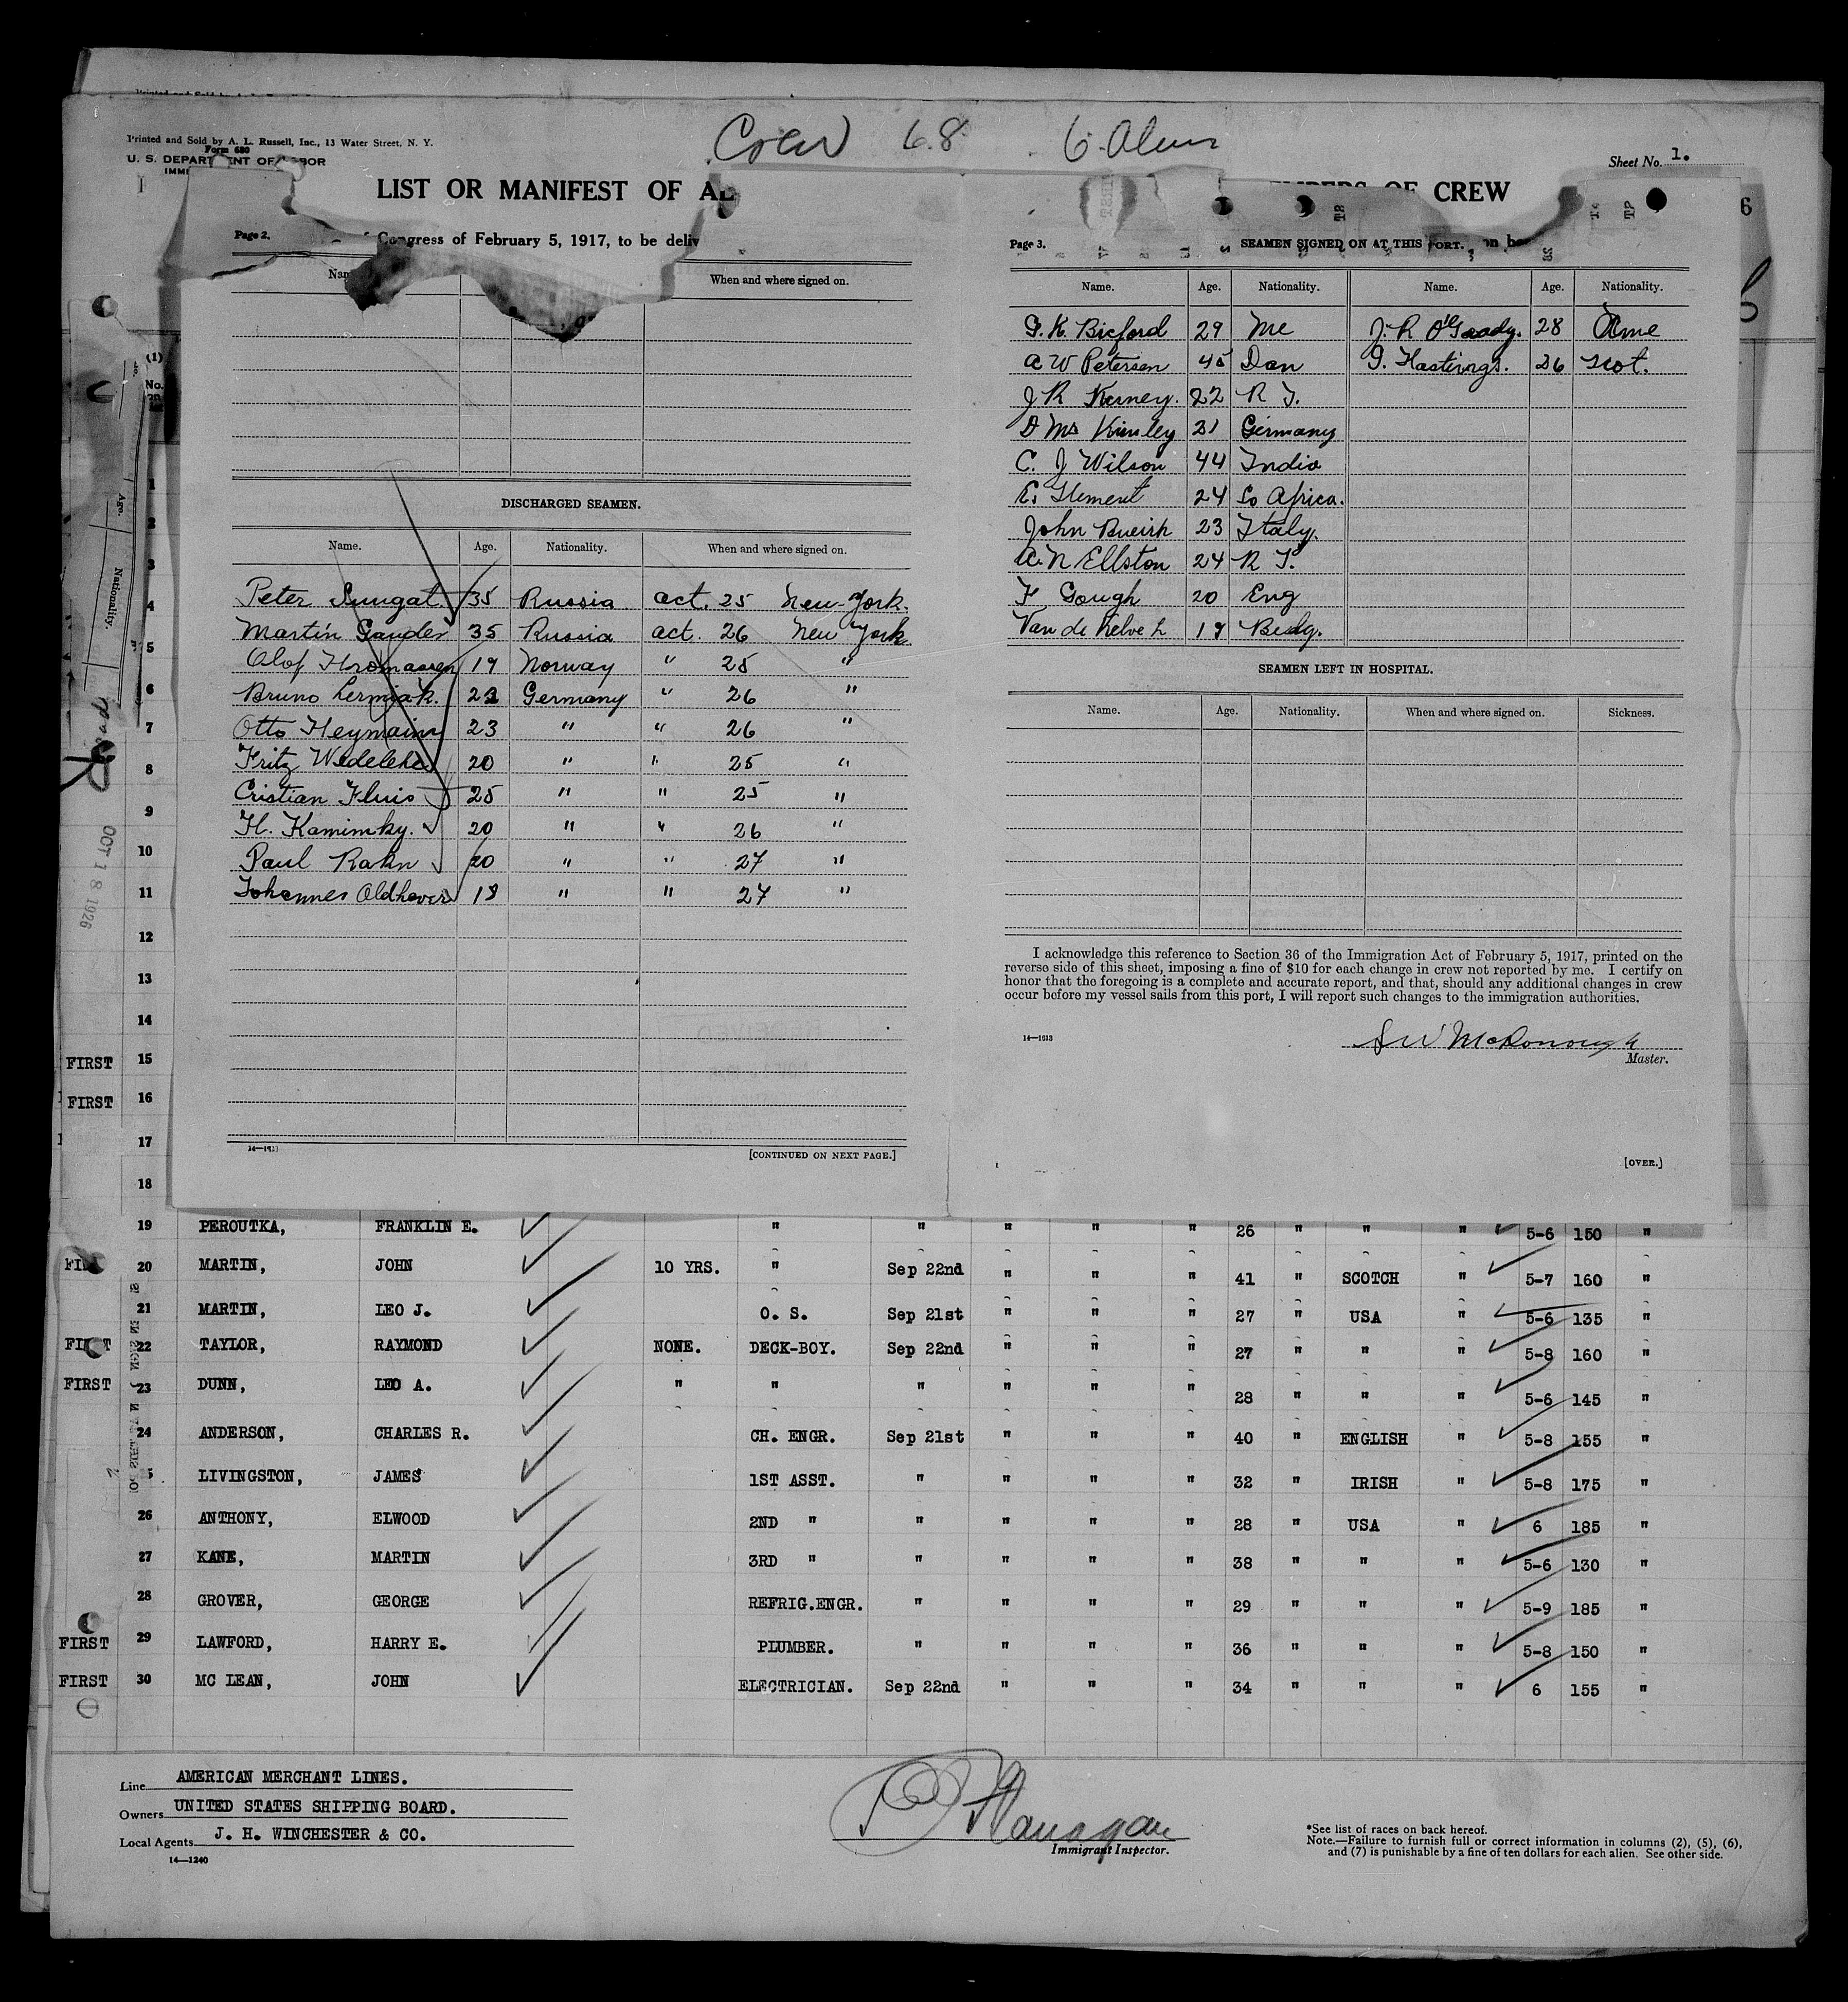 Printed and Sold by A. L. Russell, Inc., 13 Water Street, N. Y.
Form 680
U. S. DEPARTMENT OF LABOR
Crew 68 6 Aliens
Sheet No. 1.
LIST OR MANIFEST OF
OF CREW
Page 2.
Congress of February 5, 1917, to be
When and where signed on.
DISCHARGED SEAMEN.
Name. Age. Nationality. When and where signed on.
Peter 35 Russia oct. 25 New York.
Martin Gauder 35 Russia oct. 26 New York
Olof 19 Norway " 25 "
Bruno 22 Germany " 26 "
Otto Heymann 23 " " 26 "
Fritz 20 " " 25 "
Cristian 25 " " 25 "
H. Kaminsky. 20 " " 26 "
Paul Rahn 20 " " 27 "
Johannes 18 " " 27 "
[CONTINUED ON NEXT PAGE.]
Page 3.
SEAMEN SIGNED ON AT THIS PORT.
Name. Age. Nationality. Name. Age. Nationality.
G. K. Bicford 29 Me J. R O'Grady. 28 Ame
A W Petersen 45 Dan G. Hastings. 26 Scot.
J R Kerney. 22 R I.
31 Germany
C. J Wilson 44 India
E. 24 So Africa.
John 23 Italy.
A. N Ellston 24 R I.
F Gough 20 Eng
Van de 19
SEAMEN LEFT IN HOSPITAL.
Name. Age. Nationality. When and where signed on. Sickness.
I acknowledge this reference to Section 36 of the Immigration Act of February 5, 1917, printed on the
reverse side of this sheet, imposing a fine of $10 for each change in crew not reported by me. I certify on
honor that the foregoing is a complete and accurate report, and that, should any additional changes in crew
occur before my vessel sails from this port, I will report such changes to the immigration authorities.
14—1613
S W McDonough
Master.
[OVER.]
(1)
No.
Age.
Nationality.
OCT 18 1926
1
2
3
4
5
6
7
8
9
10
11
12
13
14
FIRST 15
FIRST 16
17
18
19 PEROUTKA, FRANKLIN E. " " " " " 26 " " " 5-6 150 "
20 MARTIN, JOHN 10 YRS. " Sep 22nd " " " 41 " SCOTCH " 5-7 160 "
21 MARTIN, LEO J. O. S. Sep 21st " " " 27 " USA " 5-6 135 "
FIRST 22 TAYLOR, RAYMOND NONE. DECK-BOY. Sep 22nd " " " 27 " " " 5-8 160 "
FIRST 23 DUNN, LEO A. " " " " " " 28 " " " 5-6 145 "
24 ANDERSON, CHARLES R. CH. ENGR. Sep 21st " " " 40 " ENGLISH " 5-8 155 "
5 LIVINGSTON, JAMES 1ST ASST. " " " " 32 " IRISH " 5-8 175 "
26 ANTHONY, ELWOOD 2ND " " " " " 28 " USA " 6 185 "
27 KANE, MARTIN 3RD " " " " " 38 " " " 5-6 130 "
28 GROVER, GEORGE REFRIG.ENGR. " " " " 29 " " " 5-9 185 "
FIRST 29 LAWFORD, HARRY E. PLUMBER. " " " " 36 " " " 5-8 150 "
FIRST 30 MC LEAN, JOHN ELECTRICIAN. Sep 22nd " " " 34 " " " 6 155 "
Line AMERICAN MERCHANT LINES.
Owners UNITED STATES SHIPPING BOARD.
Local Agents J. H. WINCHESTER & CO.
14—1240
Flanagan
Immigrant Inspector.
*See list of races on back hereof.
Note.—Failure to furnish full or correct information in columns (2), (5), (6),
and (7) is punishable by a fine of ten dollars for each alien. See other side.